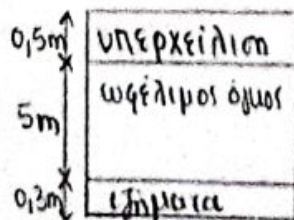 0,5m
υπερχείλιση
ωφέλιμος όγκος
5m
0,3m
ιζήματα